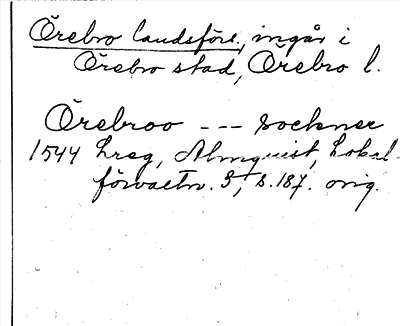 Örebro landsförs, ingår i
Örebro stad, Örebro l.
Örebroo --- sockner
1544 Lreg, Almquist, Lokal
förvaltn. 3, s. 187. orig.